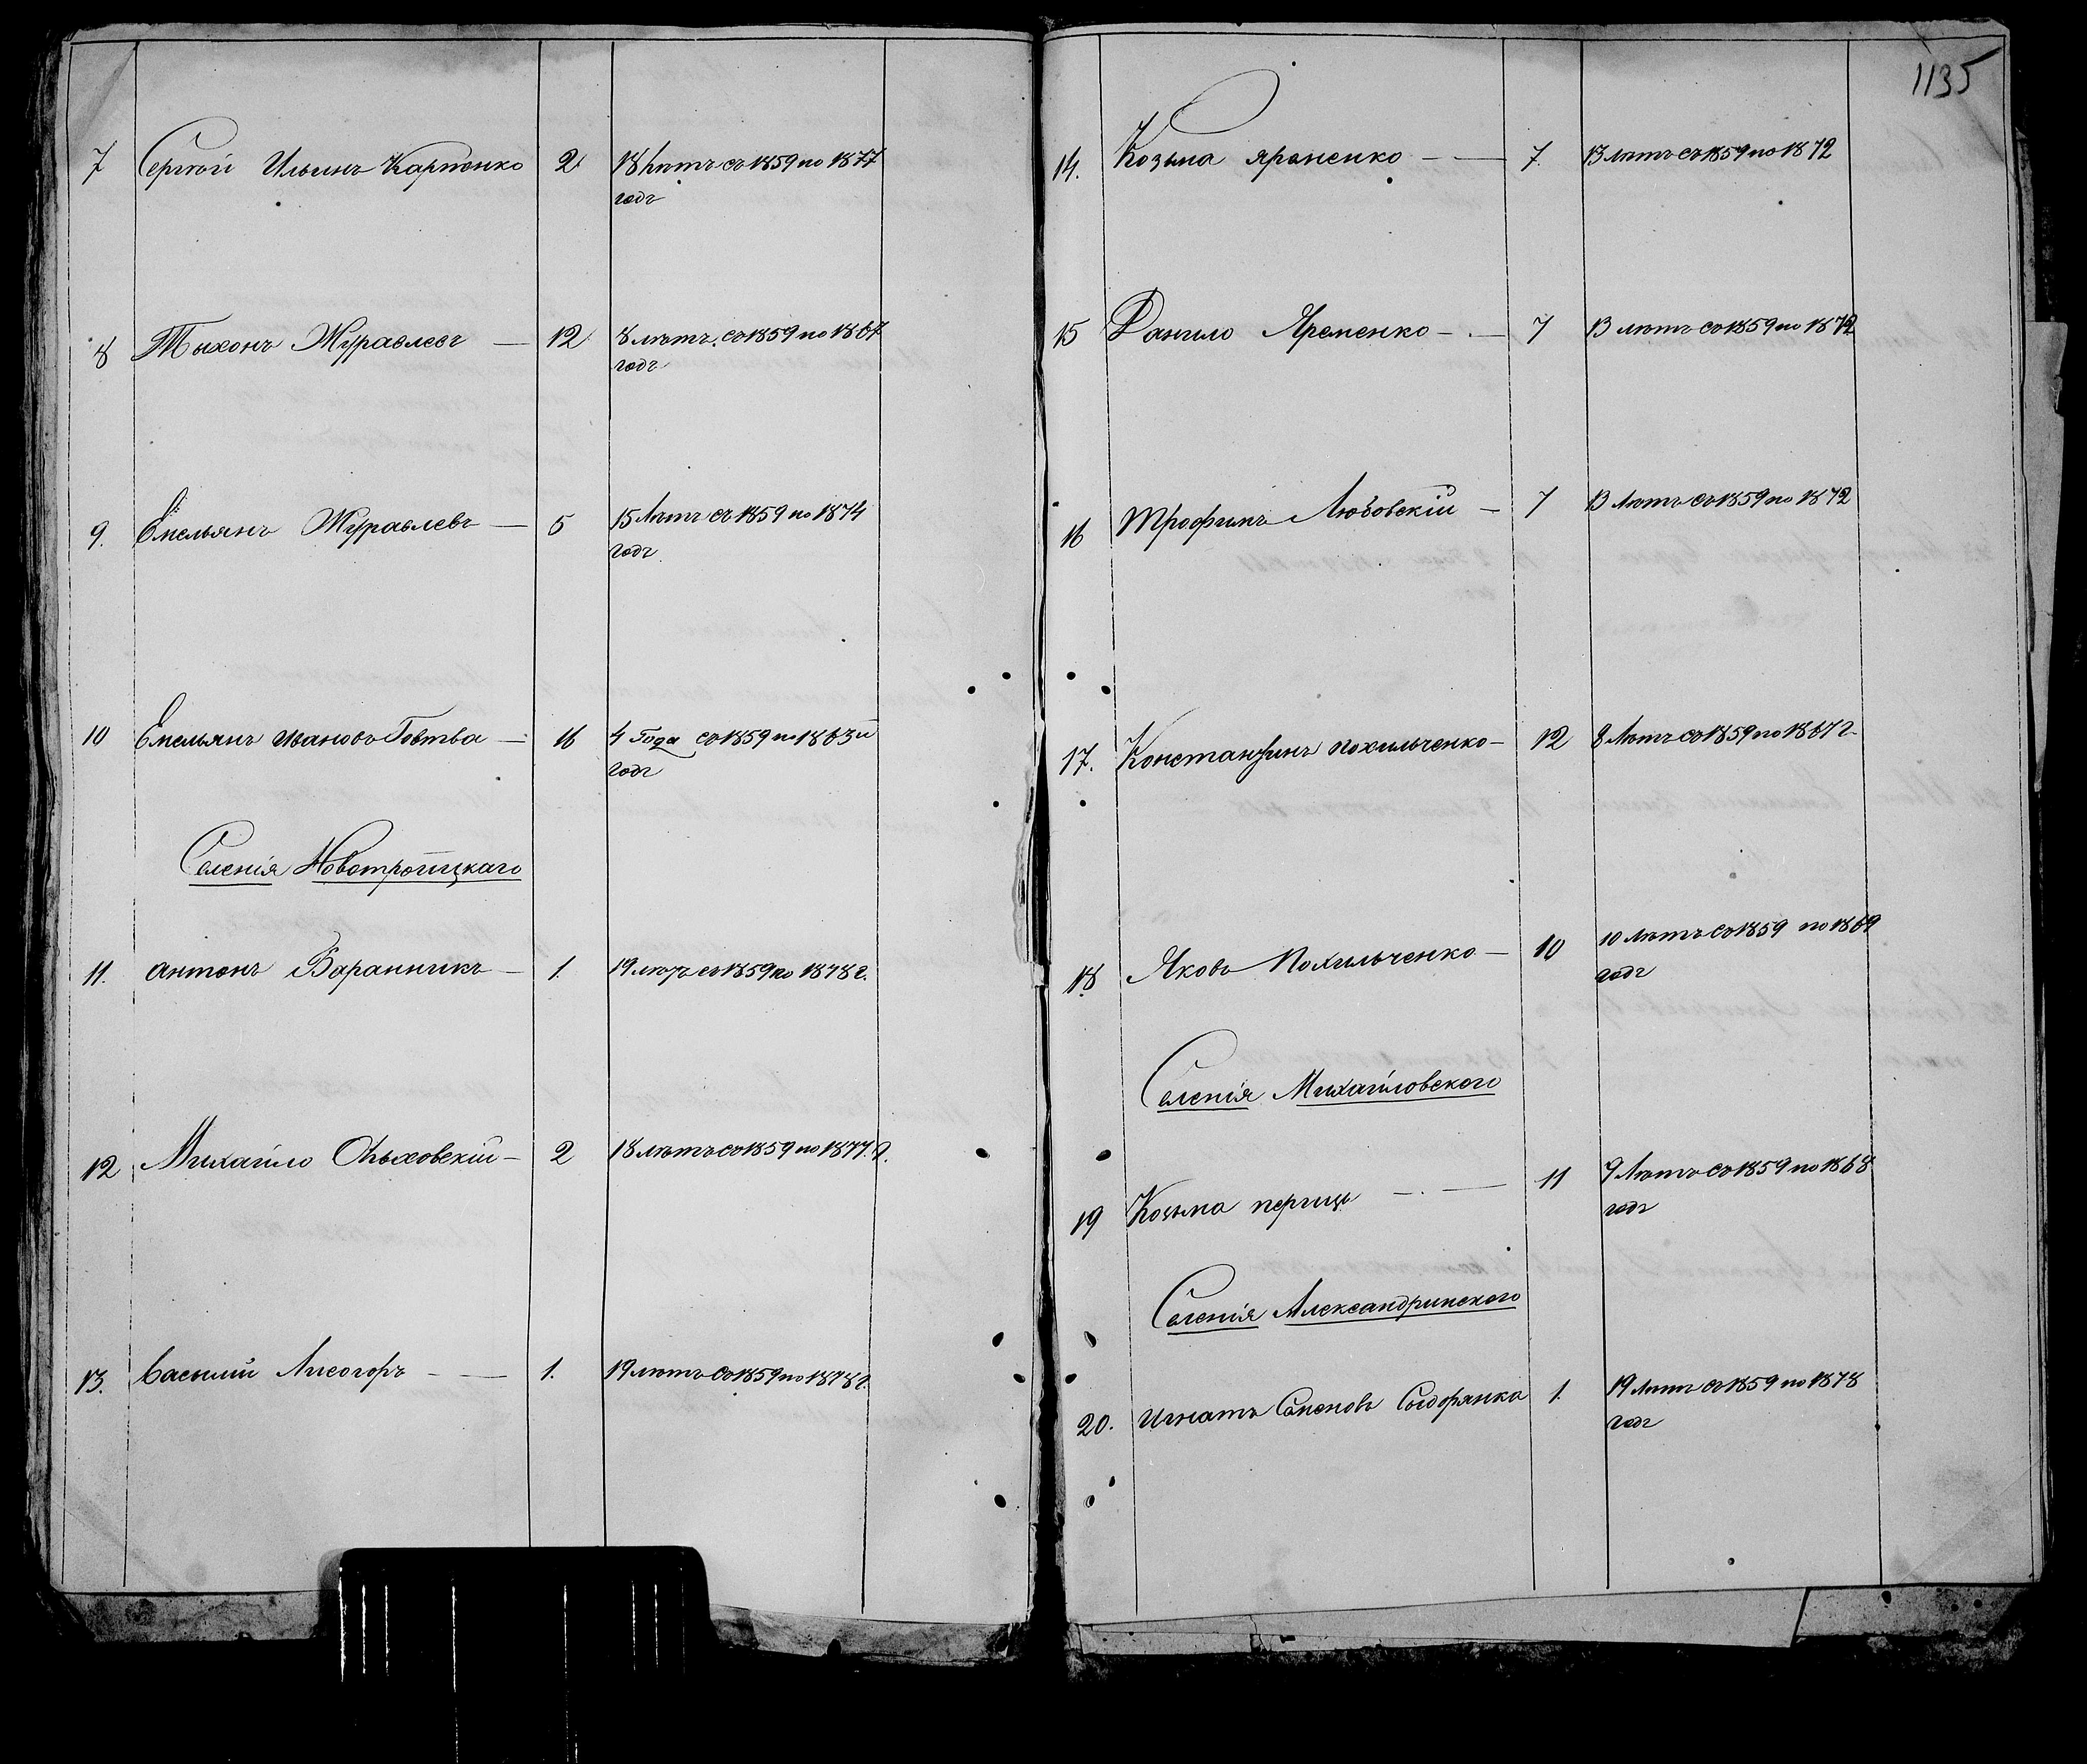 7 Сергѣй Ильинъ Карпенко 2 18 лѣтъ съ 1859 по 1877
годъ
8 Тыхонъ Журавлевъ — 12 8 лѣтъ съ 1859 по 1867
годъ
9. Емельянъ Журавлевъ — 5 15 лѣтъ съ 1859 по 1874
годъ
10 Емельянъ Ивановъ Говтва — 16 4 года съ 1859 по 1863й
годъ
Селенія Новотроицкаго
11. Антонъ Баранникъ — 1. 19 лѣтъ съ 1859 по 1878 г.
12 Михайло Ольховскій — 2 18 лѣтъ съ 1859 по 1877. г.
13. Василій Лисогоръ — 1. 19 лѣтъ съ 1859 по 1878 г.
1135
14. Козьма Яременко — 7. 13 лѣтъ съ 1859 по 1872
15 Данило Яременко — 7 13 лѣтъ съ 1859 по 1872
16 Трофимъ Любовскій — 7 13 лѣтъ съ 1859 по 1872
17. Константинъ Похильченко — 12 8 лѣтъ съ 1859 по 1867 г.
18 Яковъ Похильченко — 10 10 лѣтъ съ 1859 по 1869
годъ
Селенія Михайловского
19 Козьма Перець — 11 9 лѣтъ съ 1859 по 1868
годъ
Селенія Александринского
20. Игнатъ Семеновъ Сыдорянко 1. 19 лѣтъ съ 1859 по 1878
годъ